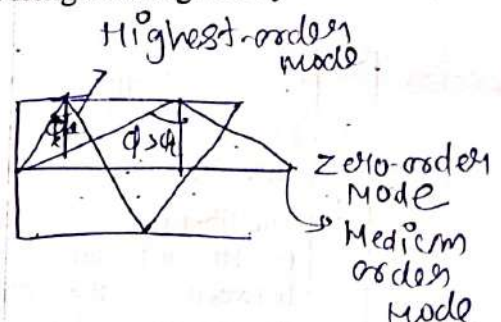 Highest-order
mode
ϕc
ϕ>ϕc
Zero-order
Mode
Medium
order
Mode